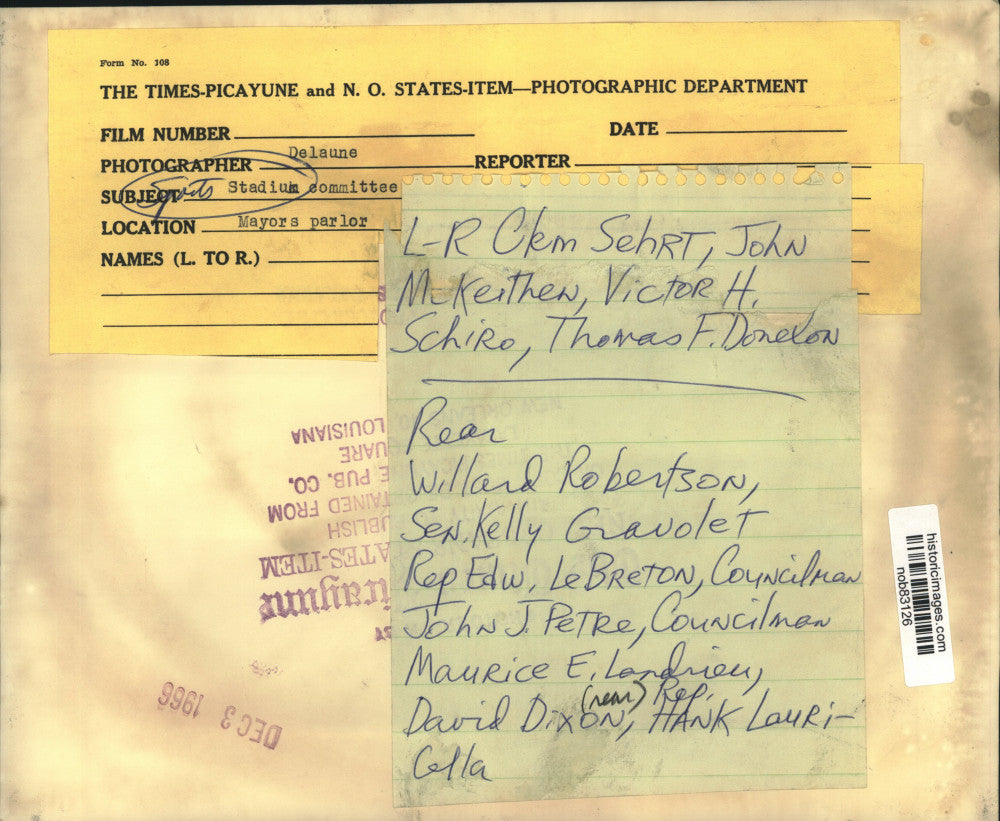 Form No. 108
THE TIMES-PICAYUNE and N. O. STATES-ITEM—PHOTOGRAPHIC DEPARTMENT
FILM NUMBER
DATE
PHOTOGRAPHER Delaune
REPORTER
SUBJECT Stadium committee
Sports
LOCATION Mayors parlor
NAMES (L. TO R.)
L-R Clem Sehrt, John
McKeithen, Victor H.
Schiro, Thomas F. Donelon
Rear
Willard Robertson,
Sen. Kelly Gravolet
Rep Edw. LeBreton, Councilman
John J. Petre, Councilman
Maurice E. Landrieu,
(rear) Rep.
David Dixon, Hank Lauri-
Cella
LOUISIANA
UARE
E PUB. CO.
TAINED FROM
UBLISH
ATES-ITEM
icayune
BY
DEC 3 1966
historicimages.com
nob83126